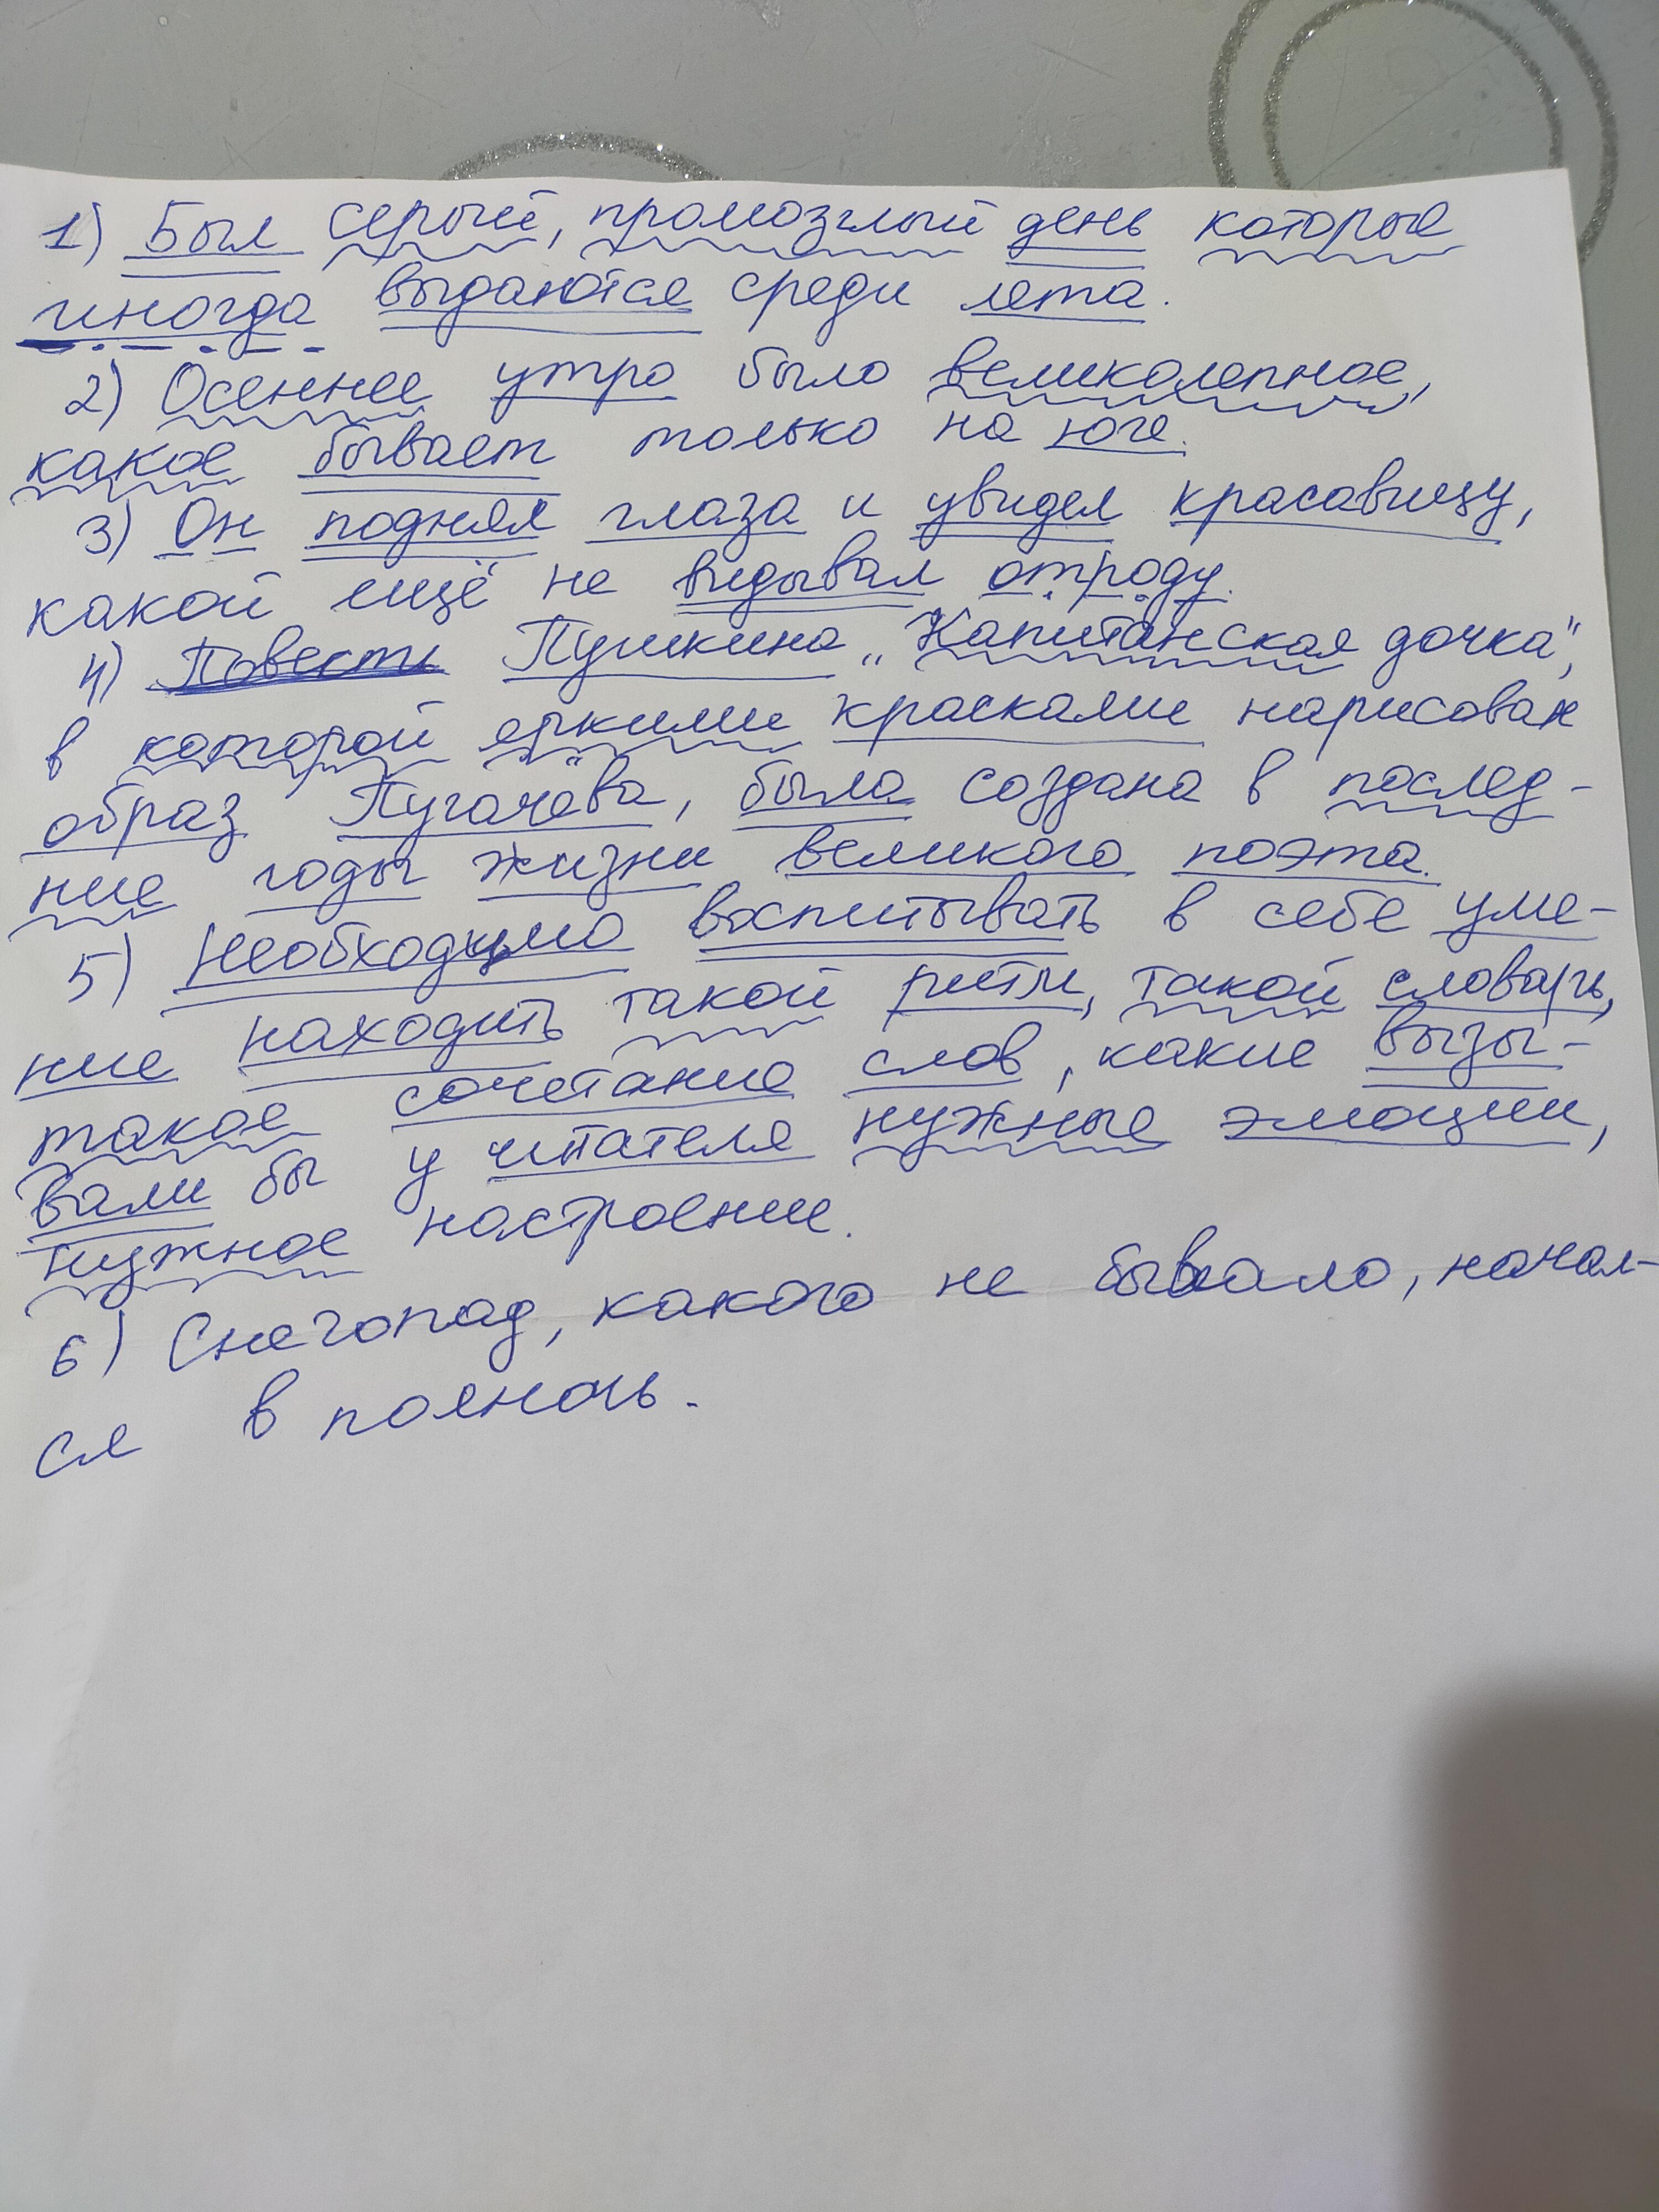 1) Был серый, промозглый день которые
иногда выдаются среди лета.
2) Осеннее утро было великолепное,
какое бывает только на юге.
3) Он поднял глаза и увидел красавицу,
какой ещё не видывал отроду.
4) Повесть Пушкина „Капитанская дочка",
в которой яркими красками нарисован
образ Пугачёва, была создана в послед-
ние годы жизни великого поэта.
5) Необходимо воспитывать в себе уме-
ние находить такой ритм, такой словарь,
такое сочетание слов, какие вызы-
вали бы у читателя нужные эмоции,
нужное настроение.
6) Снегопад, какого не бывало, начал-
ся в полночь.